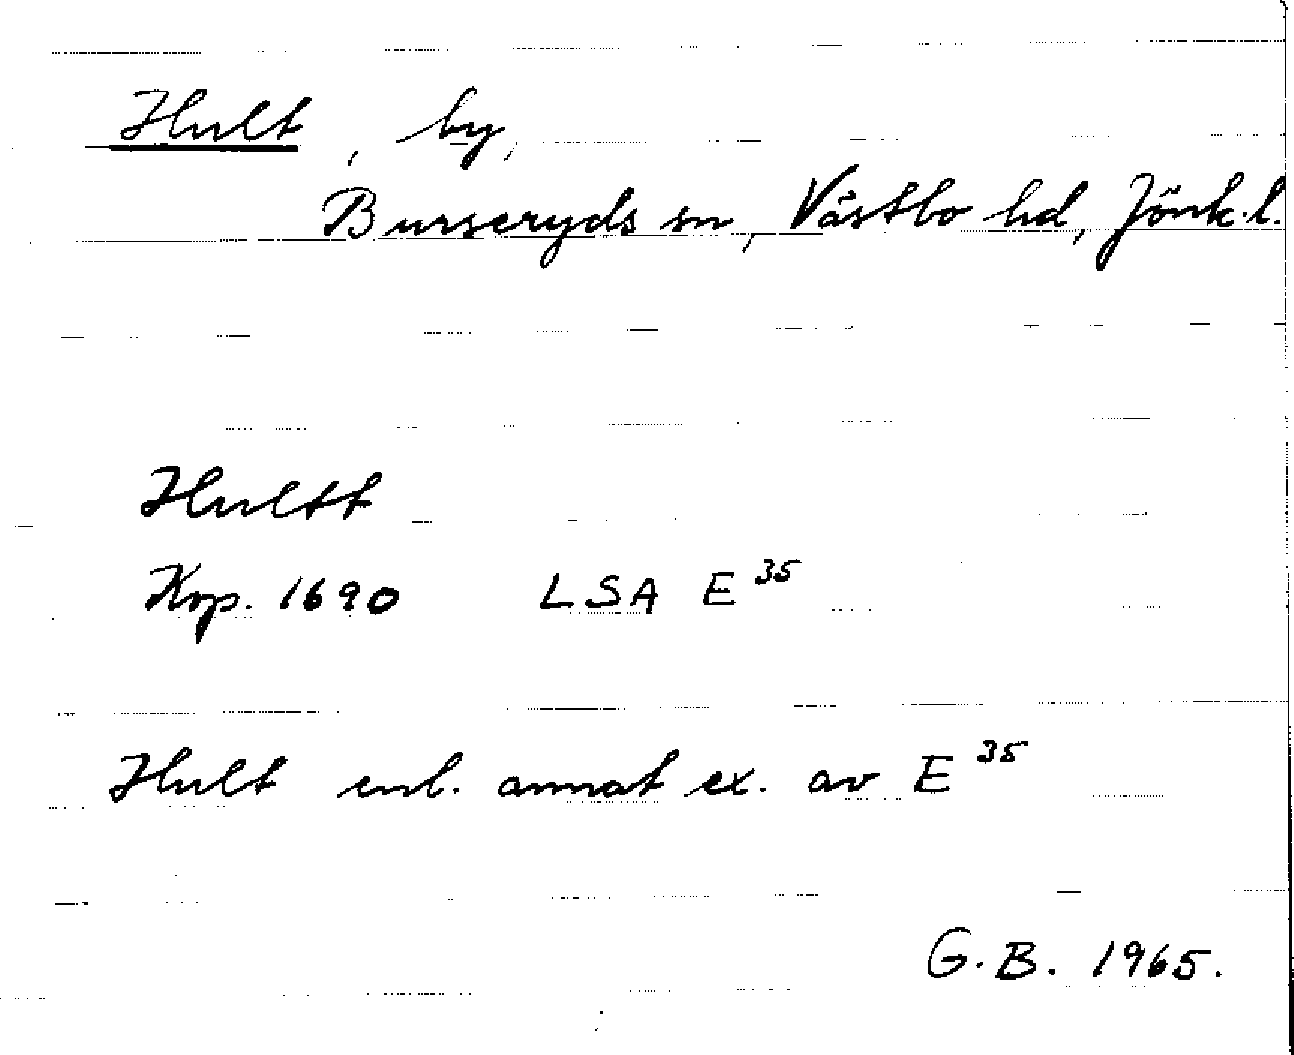 Hult, by,
Burseryds sn, Västbo hd, Jönk.l.
Hultt
Kop. 1690 LSA E 35
Hult enl. annat ex. av E 35
G.B. 1965.